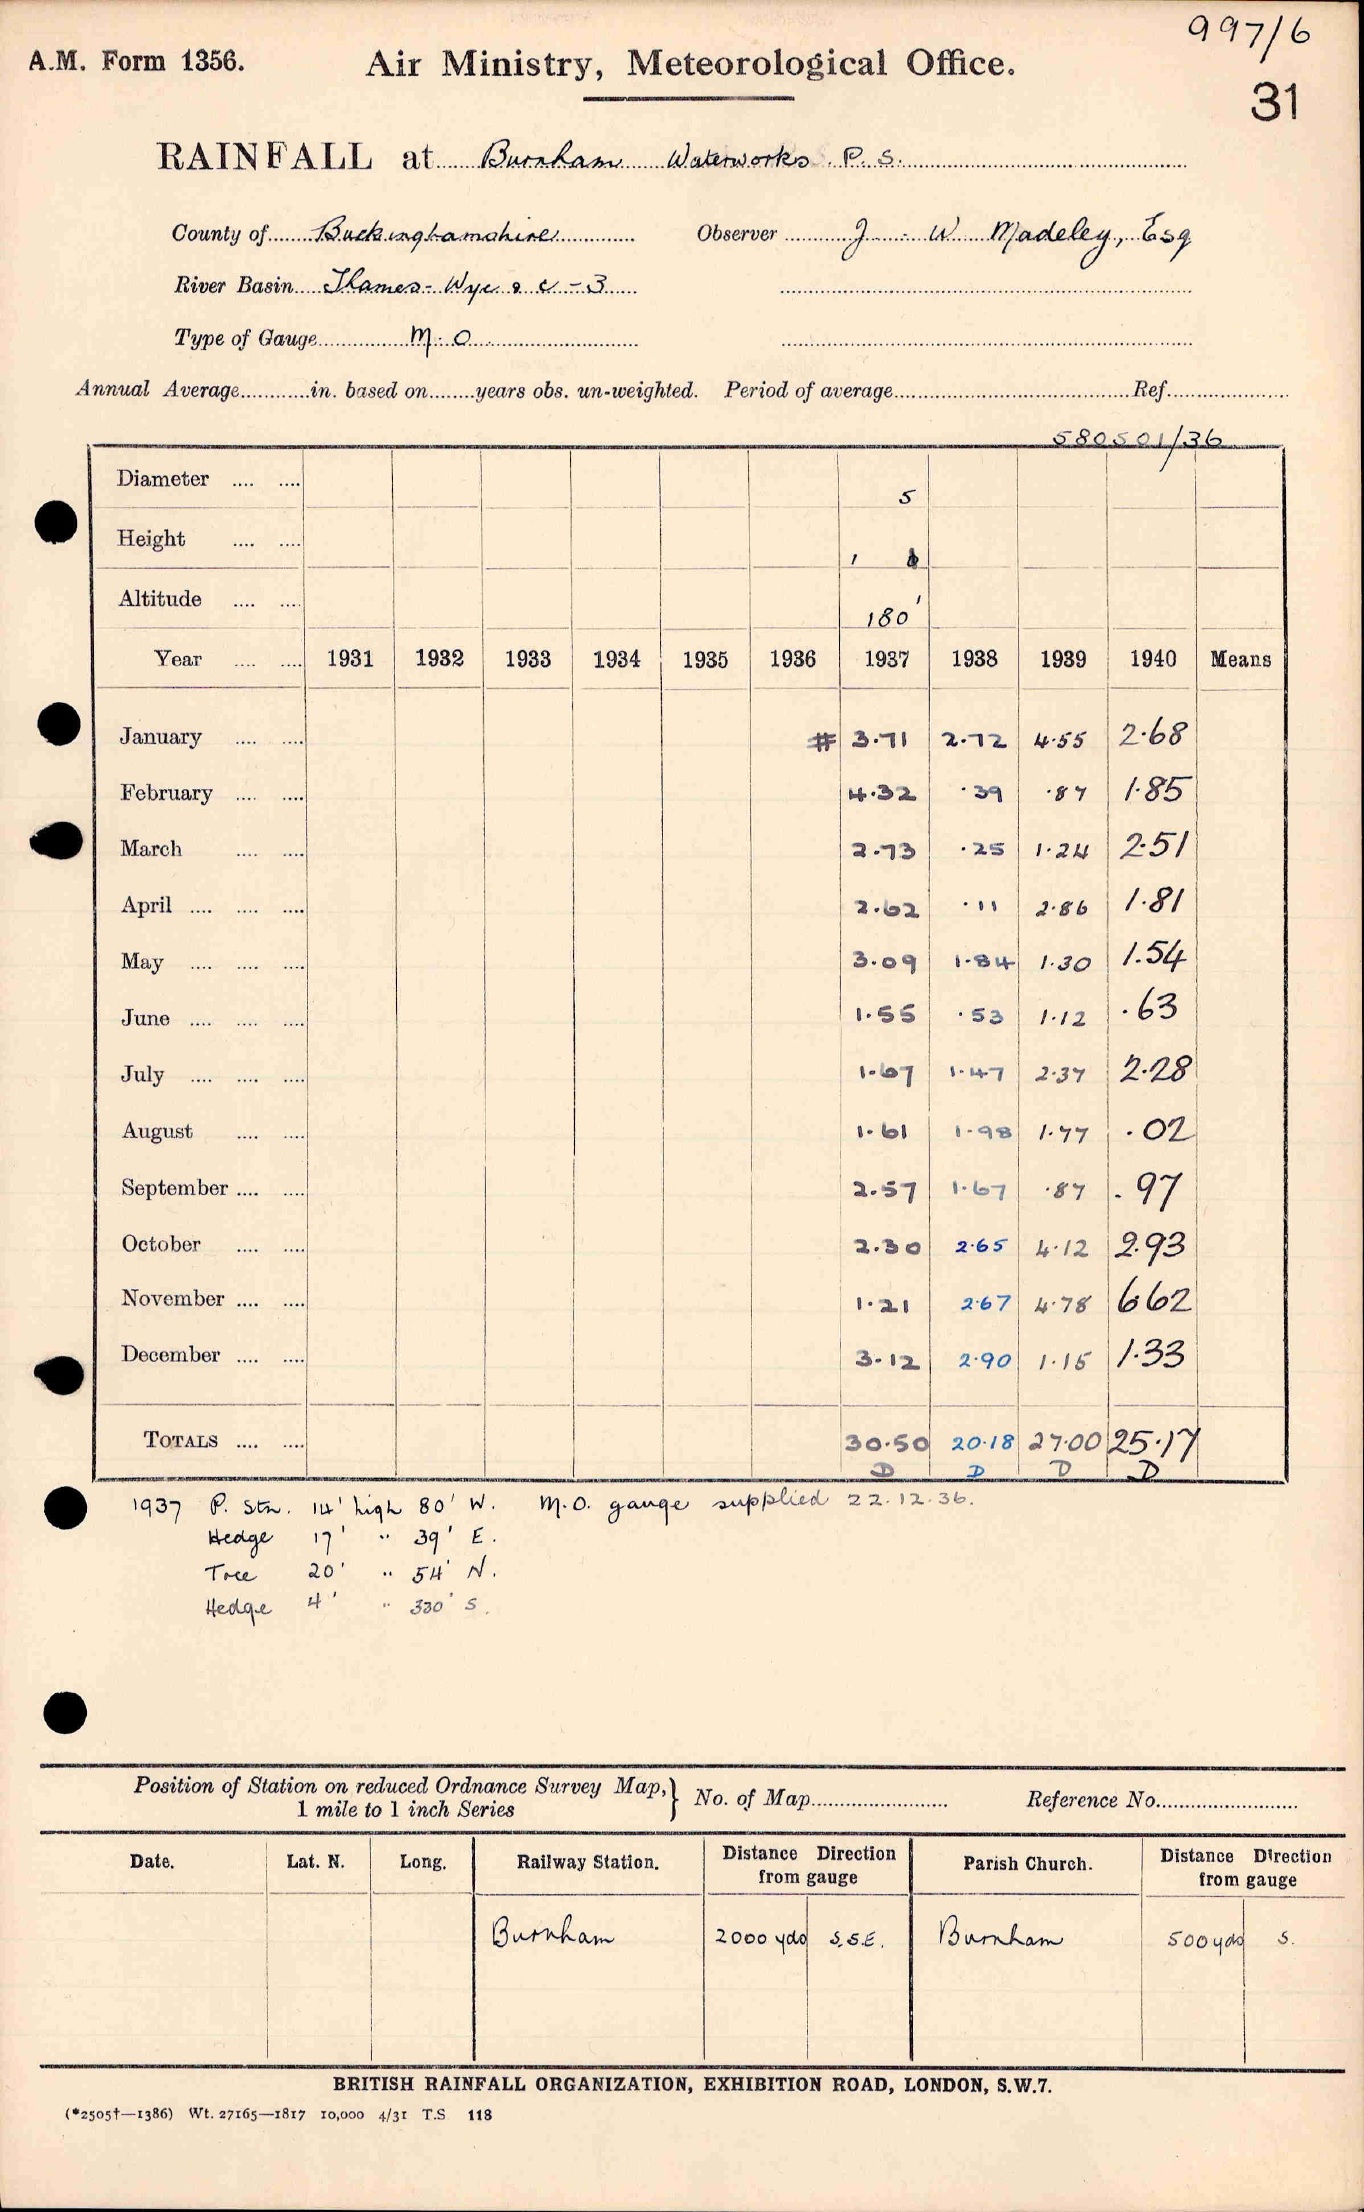 997/6
A.M. Form 1356. Air Ministry, Meteorological Office.
31
RAINFALL at Burnham Waterworks P. S.
County of Buckinghamshire Observer J. W Madeley, Esq
River Basin Thames - Wye & c - 3
Type of Gauge M. O
Annual Average in. based on years obs. un-weighted. Period of average Ref.
580501/36
Diameter 5
Height 1
Altitude 180'
Year 1931 1932 1933 1934 1935 1936 1937 1938 1939 1940 Means
January # 3.71 2.72 4.55 2.68
February 4.32 .39 .87 1.85
March 2.73 .25 1.24 2.51
April 2.62 .11 2.86 1.81
May 3.09 1.84 1.30 1.54
June 1.55 .53 1.12 .63
July 1.67 1.47 2.37 2.28
August 1.61 1.98 1.77 .02
September 2.57 1.67 .87 .97
October 2.30 2.65 4.12 2.93
November 1.21 2.67 4.78 6.62
December 3.12 2.90 1.15 1.33
TOTALS 30.50 20.18 27.00 25.17
D D D D
1937 P. Stn. 14' high 80' W. M.O. gauge supplied 22.12.36.
Hedge 17' " 39' E.
Tree 20' " 54' N.
Hedge 4' " 330' S.
Position of Station on reduced Ordnance Survey Map, } No. of Map Reference No.
1 mile to 1 inch Series
Date. Lat. N. Long. Railway Station. Distance Direction from gauge Parish Church. Distance Direction from gauge
Burnham 2000 yds S.S.E. Burnham 500 yds S.
BRITISH RAINFALL ORGANIZATION, EXHIBITION ROAD, LONDON, S.W.7.
(*2505†—1386) Wt. 27165—1817 10,000 4/31 T.S 118